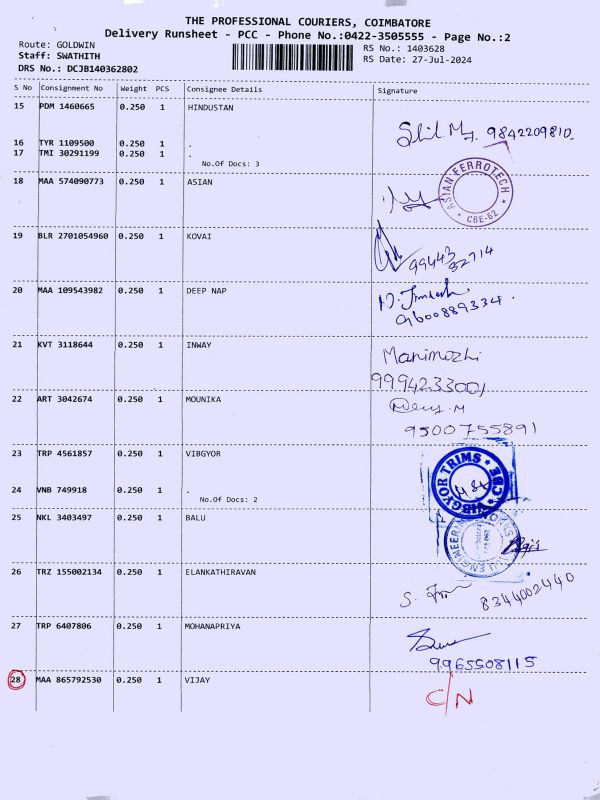 THE PROFESSIONAL COURIERS, COIMBATORE
Delivery Runsheet - PCC - Phone No.:0422-3505555 - Page No.:2
Route: GOLDWIN
Staff: SWATHITH
DRS No.: DCJB140362802
RS No.: 1403628
RS Date: 27-Jul-2024
S No Consignment No Weight PCS Consignee Details Signature
15 PDM 1460665 0.250 1 HINDUSTAN
9842209810.
16 TYR 1109500 0.250 1 .
17 TMI 30291199 0.250 1 .
No.Of Docs: 3
18 MAA 574090773 0.250 1 ASIAN
ASIAN FERROTECH * CBE-62 *
19 BLR 2701054960 0.250 1 KOVAI
20 MAA 109543982 0.250 1 DEEP NAP
9600889334.
21 KVT 3118644 0.250 1 INWAY
Manimozhi
9994233001
22 ART 3042674 0.250 1 MOUNIKA
9500755891
23 TRP 4561857 0.250 1 VIBGYOR
VIBGYOR TRIMS * CBE *
24 VNB 749918 0.250 1 .
No.Of Docs: 2
25 NKL 3403497 0.250 1 BALU
26 TRZ 155002134 0.250 1 ELANKATHIRAVAN
8344002440
27 TRP 6407806 0.250 1 MOHANAPRIYA
9965508115
28 MAA 865792530 0.250 1 VIJAY
C/N